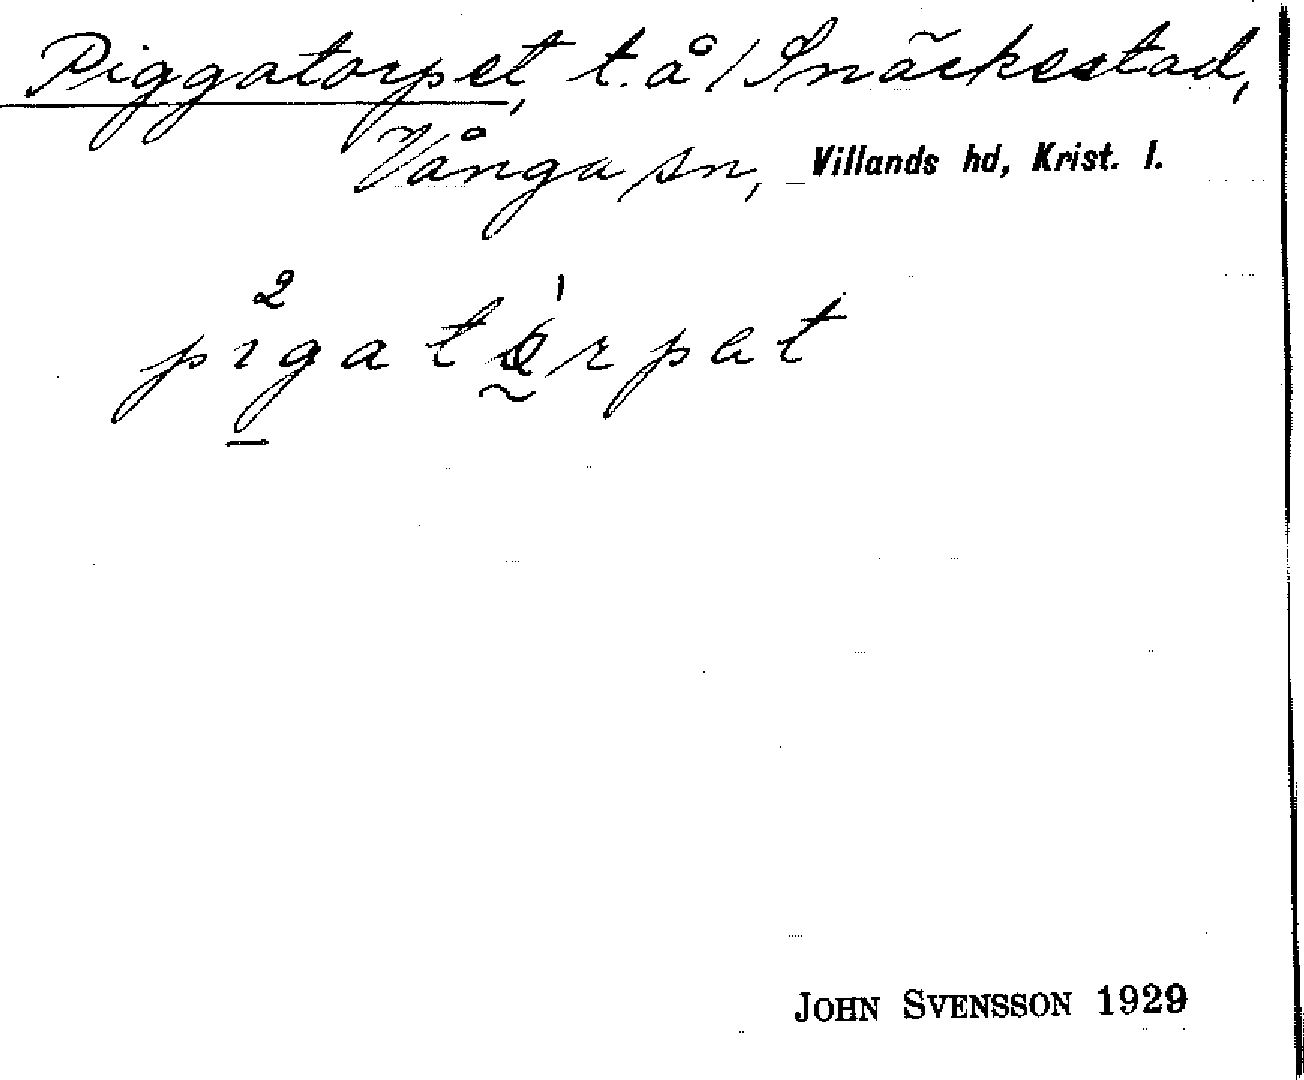 Piggatorpet, t. å / Snäckestad,
Vånga sn, Villands hd, Krist. l.
2 1
pigatårpat
JOHN SVENSSON 1929